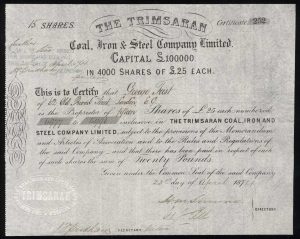 15 SHARES.
Certificate 252
THE TRIMSARAN
Coal, Iron & Steel Company Limited.
CAPITAL £100000
IN 4000 SHARES OF £25 EACH.
This is to Certify that George
of 62 Old Broad Street London E.C.
is the Proprietor of fifteen Shares of £25 each numbered
inclusive in THE TRIMSARAN COAL, IRON AND
STEEL COMPANY LIMITED, subject to the provisions of the Memorandum
and Articles of Association and to the Rules and Regulations of
the said Company and that there has been paid in respect of each
of such shares the sum of Twenty Pounds.
Given under the Common Seal of the said Company
April
DIRECTORS.
TRIMSARAN
SECRETARY